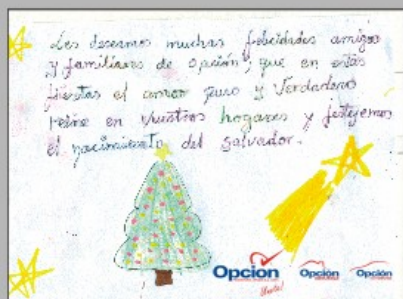 Les deseamos muchas felicidades amigos
y familiares de opción, que en estás
fiestas el amor puro y Verdadero
reine en nuestros hogares y festejemos
el nacimiento del Salvador.
Opcion Opción Opción